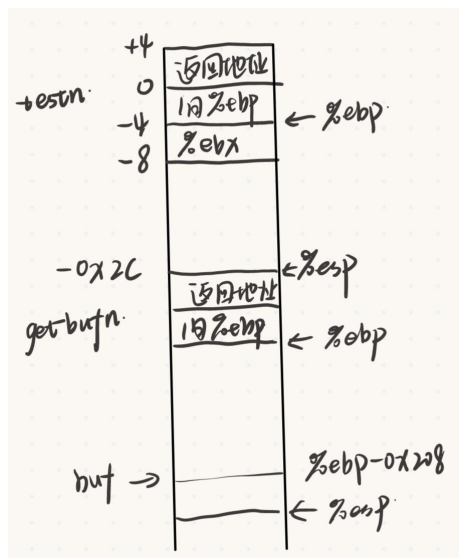 +4
返回地址
0
testn.
旧%ebp
-4
← %ebp
%ebx
-8
-0x2C
←%esp
返回地址
getbufn.
旧%ebp
← %ebp
%ebp-0x208
buf →
← %esp